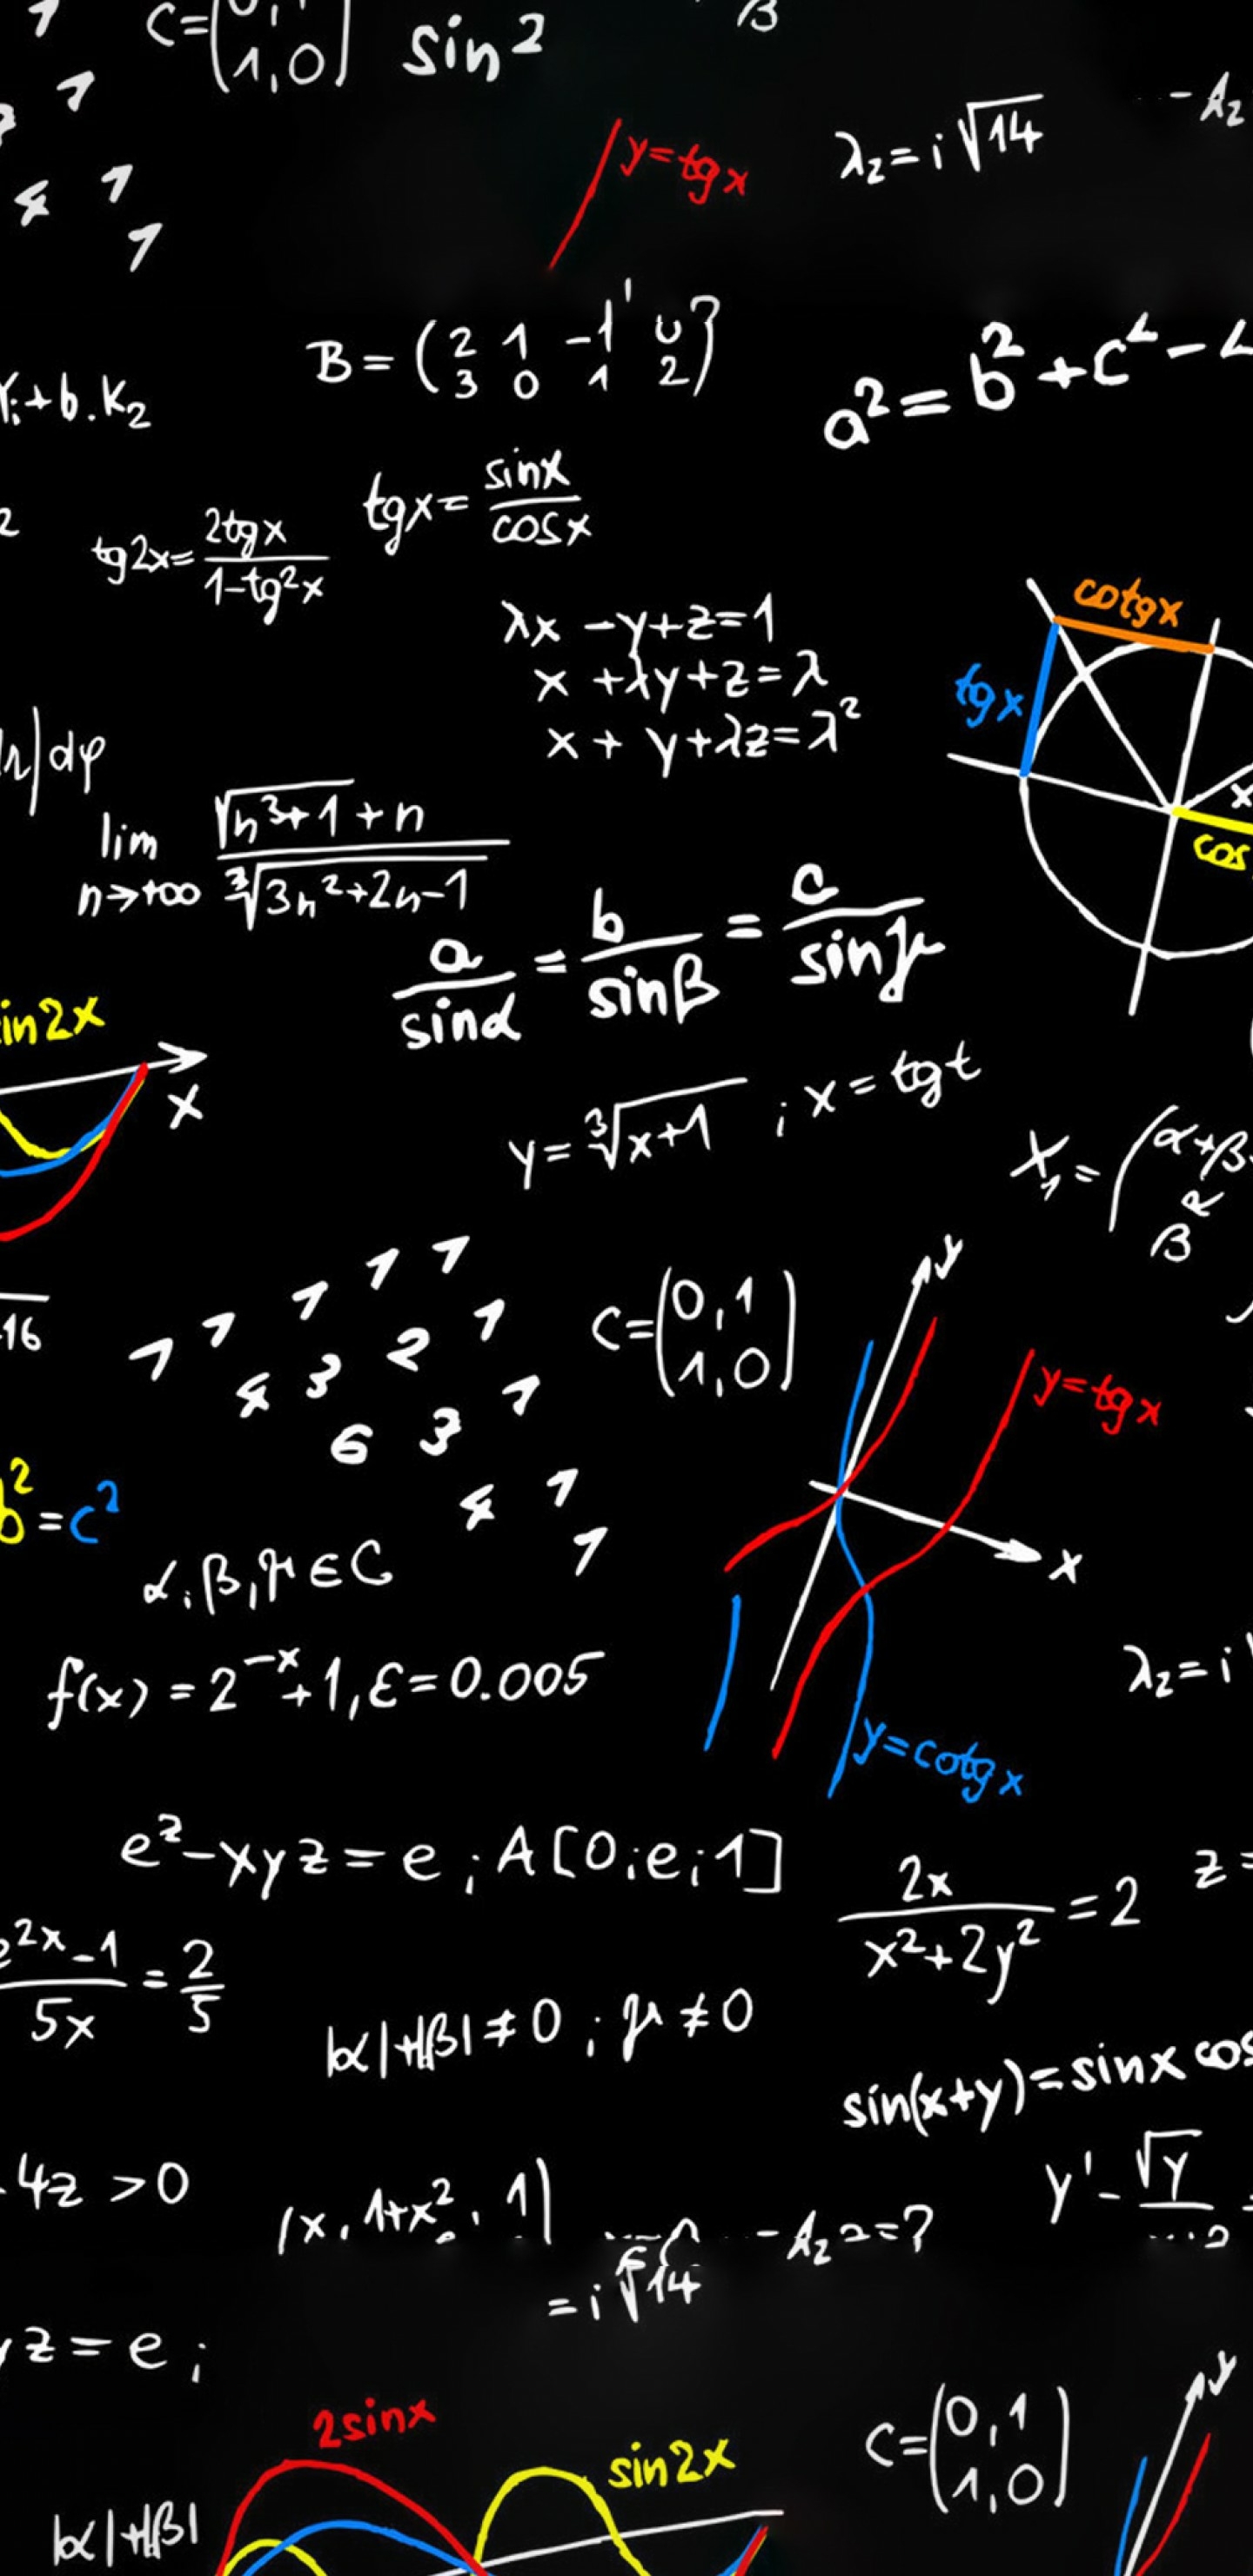 C=(0,1
1,0)
sin²
β
1
1
4 1
1
y=tgx
λ₂=i√14
-A₂
B=(2 1 -1 0
3 0 1 2)
+b.K₂
a²=b²+c²-
2
tg2x=2tgx/1-tg²x
tgx=sinx/cosx
λx-y+z=1
x+λy+z=λ
x+y+λz=λ²
cotgx
tgx
x
cos
|dφ
lim n→+∞ (√n³+1+n)/(∛3n²+2n-1)
a/sinα=b/sinβ=c/sinγ
in2x
x
y=∛x+1 ; x=tgt
X₁=(α+β
α
β
16
1 1 1 1 1
4 3 2 1
6 3 1
4 1
1
C=(0,1
1,0)
y
y=tgx
x
y=cotgx
b²=c²
α,β,γ∈C
f(x)=2⁻ˣ+1,ε=0.005
λ₂=i
eᶻ-xyz=e;A[0;e;1]
2x/x²+2y²=2
z=
e²ˣ-1/5x=2/5
|α|+|β|≠0;γ≠0
sin(x+y)=sinx cos
4z>0
(x,1+x²,1)
-A₂ z=?
y'-√y
=i√14
z=e;
2sinx
sin2x
C=(0,1
1,0)
y
|α|+|β|